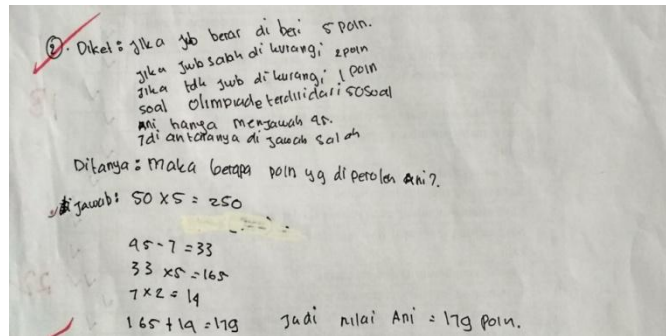 ②. Diket : Jika jwb benar di beri 5 poin.
Jika jwb salah di kurangi 2 poin
Jika tdk jwb di kurangi 1 poin
soal Olimpiade terdiri dari 50 soal
Ani hanya menjawab 45.
7 di antaranya di jawab salah
Ditanya : Maka berapa poin yg di peroleh Ani?.
Jawab : 50 x 5 = 250
45 - 7 = 33
33 x 5 = 165
7 x 2 = 14
165 + 14 = 179 Jadi nilai Ani = 179 poin.